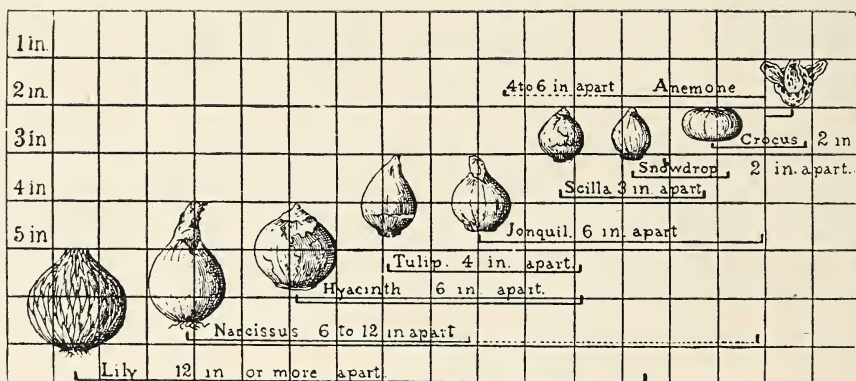 1 in.
2 in.
4 to 6 in apart Anemone
3 in
Crocus 2 in
Snowdrop 2 in. apart.
4 in
Scilla 3 in. apart
5 in
Jonquil. 6 in. apart
Tulip. 4 in. apart.
Hyacinth 6 in. apart.
Narcissus 6 to 12 in apart
Lily 12 in or more apart.